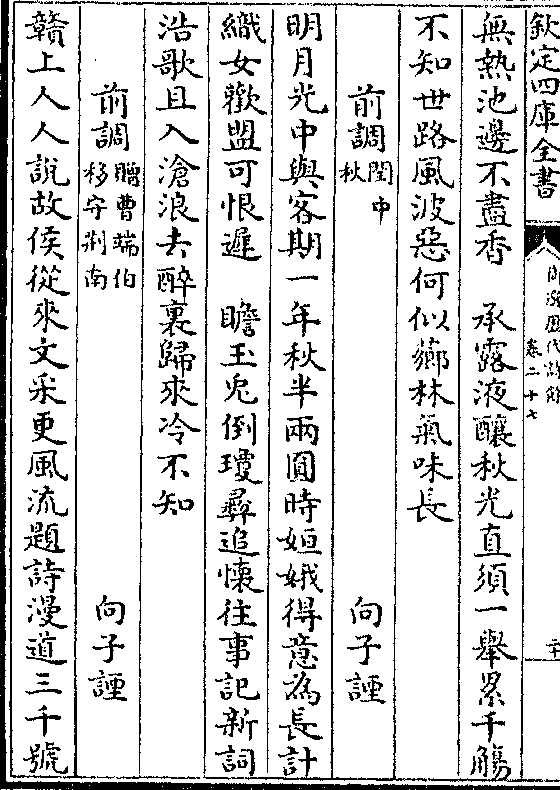 欽定四庫全書
御選歷代詩餘
卷二十七
無熱池邊不盡香　承露液釀秋光直須一舉累千觴
不知世路風波惡何似薌林氣味長
前調閏中秋　向子諲
明月光中與客期一年秋半兩圓時姮娥得意為長計
織女歡盟可恨遲　瞻玉兔倒瓊彝追懷往事記新詞
浩歌且入滄浪去醉裏歸來冷不知
前調贈曹端伯移守荆南　向子諲
贛上人人説故侯從來文采更風流題詩漫道三千號